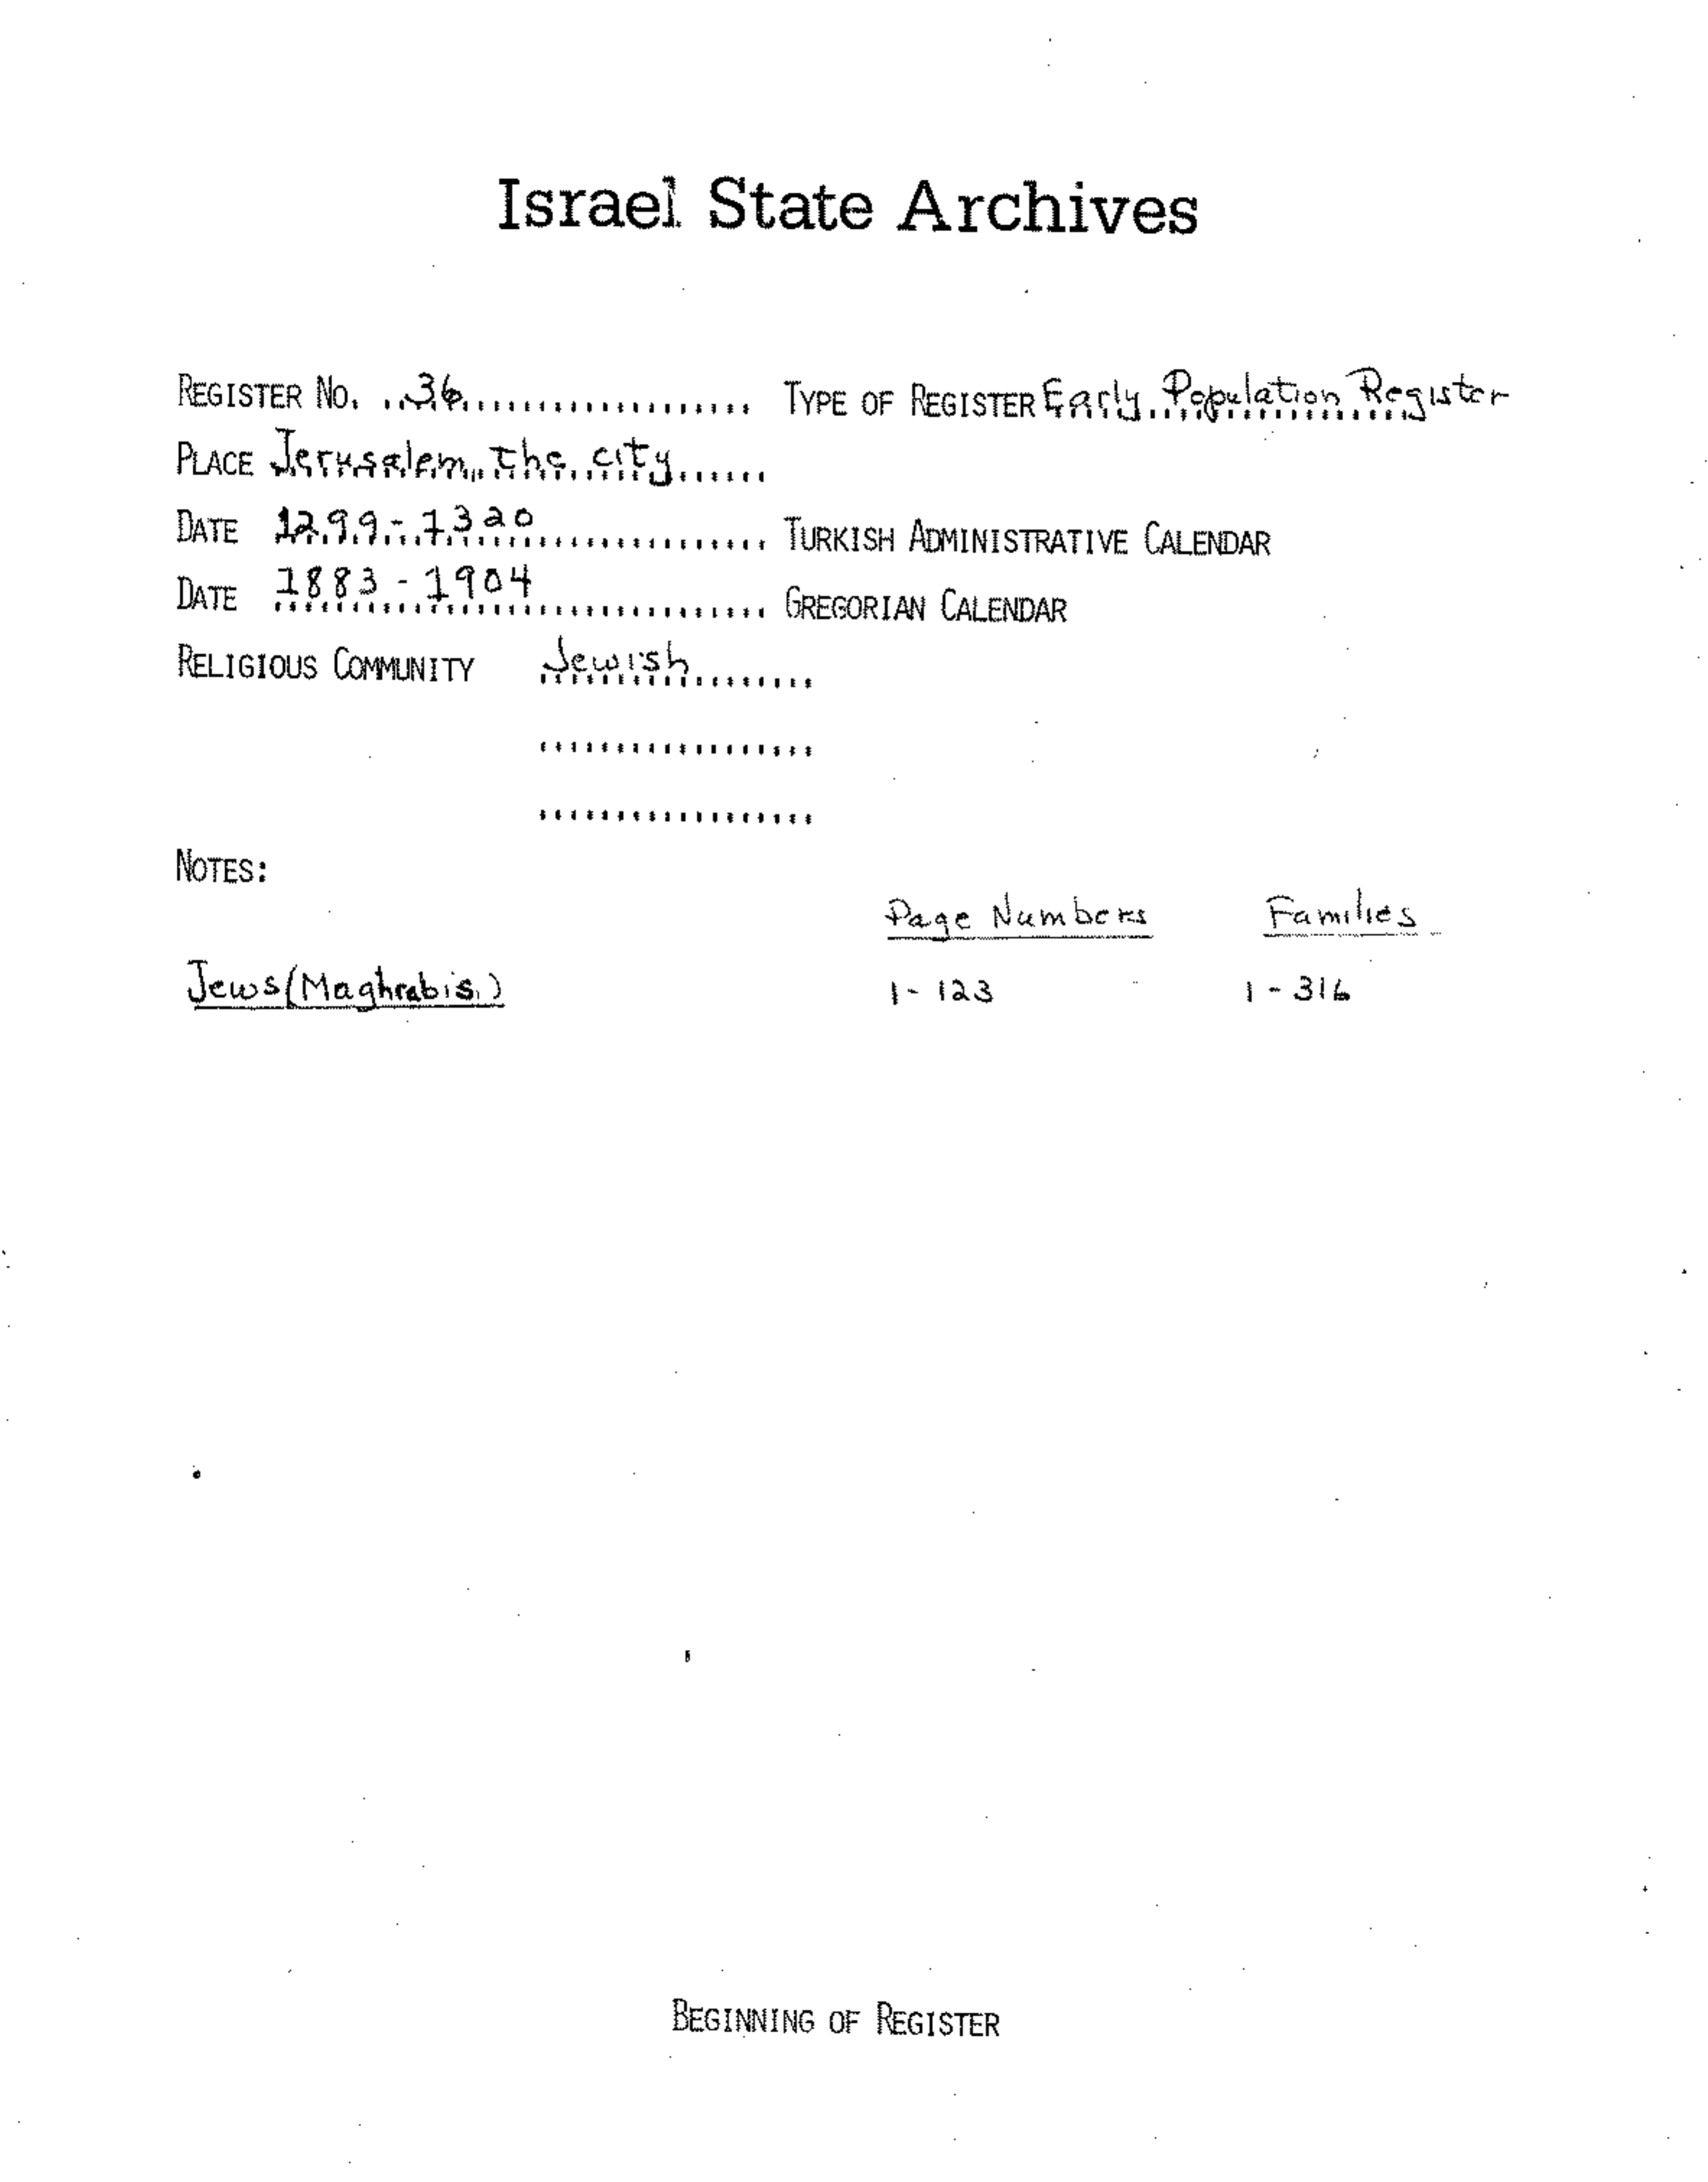 Israel State Archives
REGISTER NO. 36 TYPE OF REGISTER Early Population Register
PLACE Jerusalem, the city
DATE 1299-1320 TURKISH ADMINISTRATIVE CALENDAR
DATE 1883-1904 GREGORIAN CALENDAR
RELIGIOUS COMMUNITY Jewish
NOTES:
Page Numbers Families
Jews (Maghrabis) 1-123 1-316
BEGINNING OF REGISTER